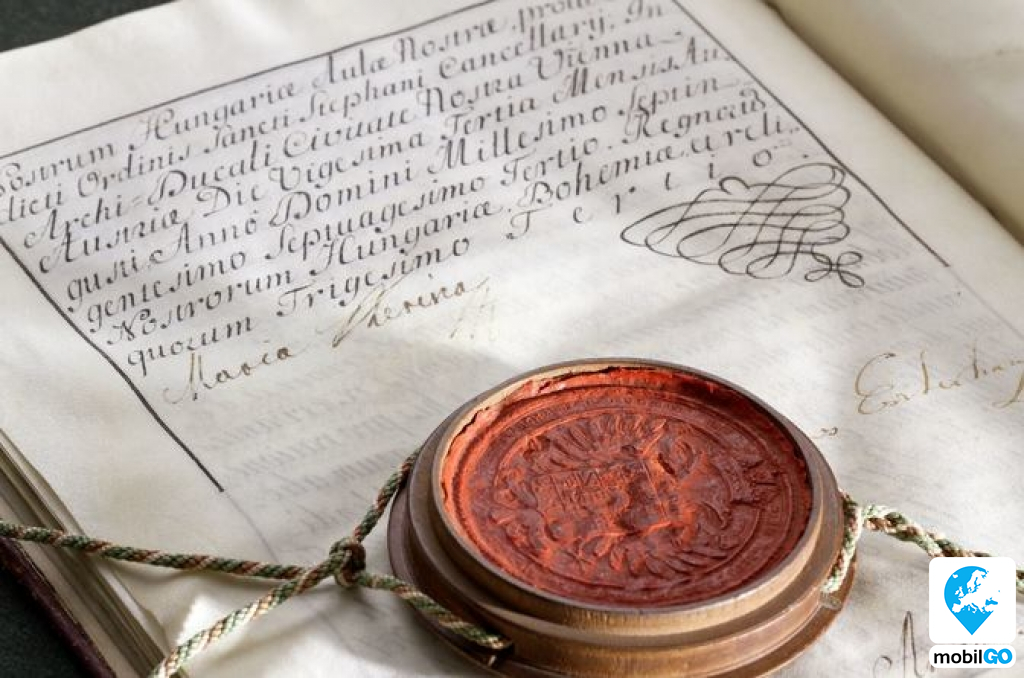 Hungariæ Aulæ Nostræ
Ordinis Sancti Stephani Cancellary. In
Archi-Ducali Civitate Nostra Vienna
Austriæ Die Vigesima Tertia Mensis Au-
gusti Anno Domini Millesimo Septin-
gentesimo Septuagesimo Tertio. Regnorũ
Nostrorum Hungariæ, Bohemiæ, et reli-
quorum Trigesimo Tertio.
Maria Theresia
mobilGO